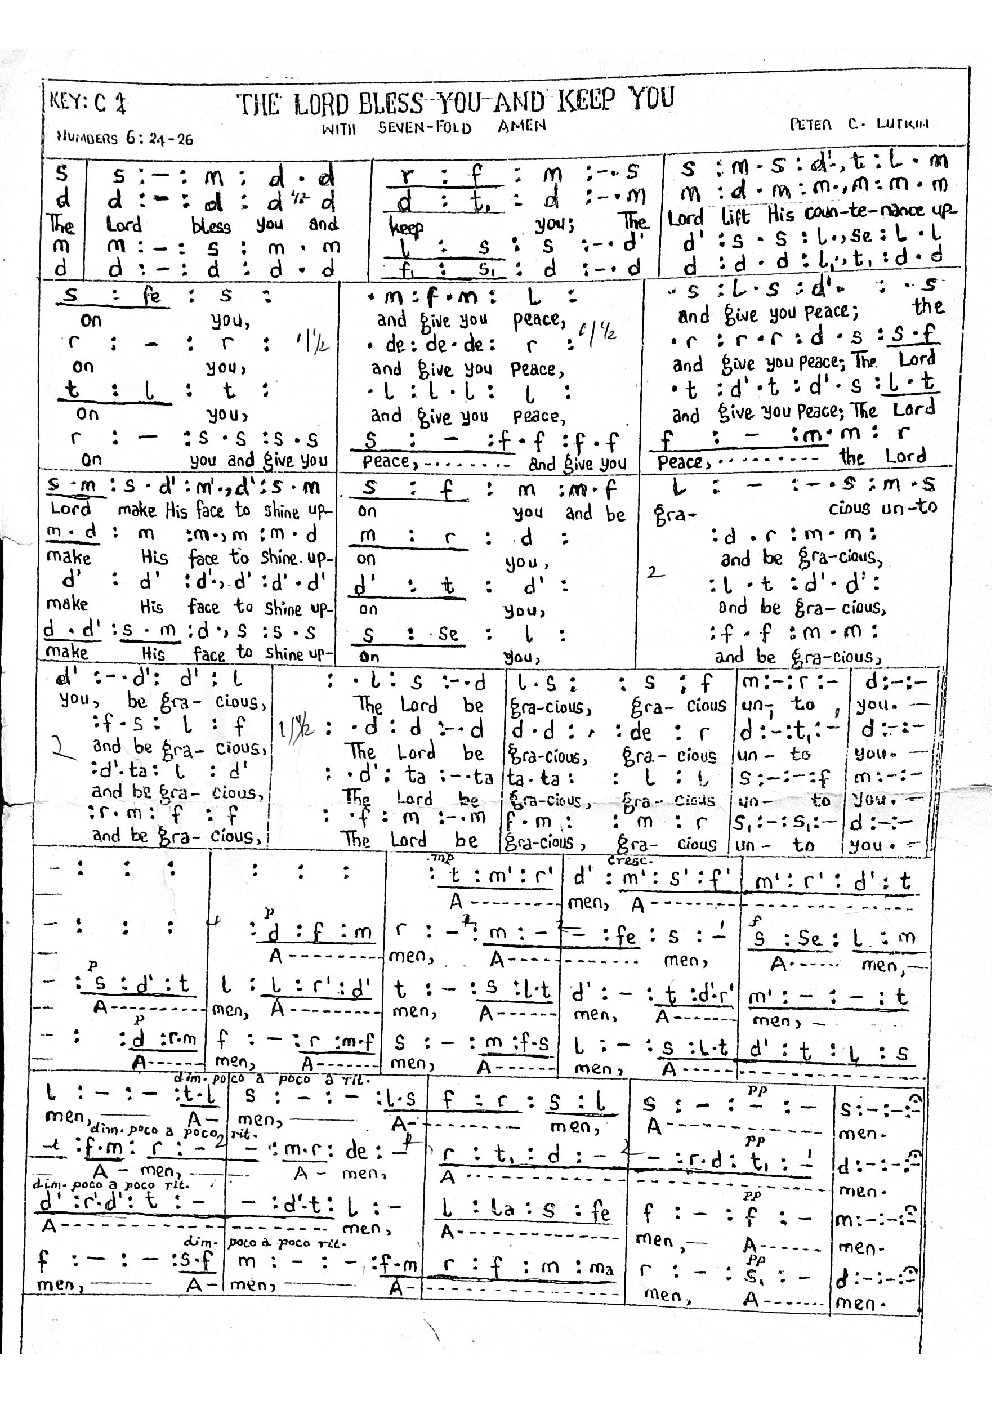 KEY: C
THE LORD BLESS YOU AND KEEP YOU
NUMBERS 6: 24-26
WITH SEVEN-FOLD AMEN
PETER C. LUTKIN
s | s : - : m : d . d | r : f : m : - . s | s : m . s : d' ., t : l . m
d | d : - : d : d 1/2 d | d : t₁ : d : - . m | m : d . m : m ., m : m . m
The Lord bless you and keep you; The Lord lift His coun-te-nance up-
m | m : - : s : m . m | l : s : s : - . d' | d' : s . s : l ., se : l . l
d | d : - : d : d . d | f₁ : s₁ : d : - . d | d : d . d : l₁ ., t₁ : d . d
s : fe : s : | . m : f . m : l : | . s : l . s : d' . : . s
on you, and give you peace, and give you peace; the
r : - : r : 1 1/2 | . de : de . de : r : 1 1/2 | . r : r . r : d . s : s . f
on you, and give you Peace, and give you Peace; The Lord
t : l : t : | . l : l . l : l : | . t : d' . t : d' . s : l . t
on you, and give you peace, and give you Peace; The Lord
r : - : s . s : s . s | s : - : f . f : f . f | f : - : m . m : r
on you and give you Peace, -------- and give you Peace, --------- the Lord
s . m : s . d' : m' ., d' : s . m | s : f : m : m . f | l : - : - . s : m . s
Lord make His face to shine up- on you and be gra- cious un-to
m . d : m : m ., m : m . d | m : r : d : | : d . r : m . m :
make His face to shine up- on you, and be gra-cious,
d' : d' : d' ., d' : d' . d' | d' : t : d' : | 2 : l . t : d' . d' :
make His face to Shine up- on you, and be gra-cious,
d . d' : s . m : d ., s : s . s | s : se : l : | : f . f : m . m :
make His face to shine up- on you, and be gra-cious,
d' : - . d' : d' : l | : . l : s : - . d | l . s : : s : f | m : - : r : - | d : - : -
you, be gra-cious, The Lord be gra-cious, gra-cious un- to, you. —
: f . s : l : f | : . d : d : - . d | d . d : : de : r | d : - : t₁ : - | d : - : -
2 and be gra-cious, The Lord be gra-cious, gra-cious un - to you. -
: d' . ta : l : d' | : . d' : ta : - . ta | ta . ta : : l : l | s : - : - : f | m : - : -
and be gra-cious, The Lord be gra-cious, gra-cious un- to you. -
: r . m : f : f | : . f : m : - . m | f . m : : m : r | s₁ : - : s₁ : - | d : - : -
and be gra-cious, The Lord be gra-cious, gra-cious un - to you. -
mp cresc.
- : : : | : : : | : t : m' : r' | d' : m' : s' : f' | m' : r' : d' : t
A ------ men, A ----------------
p f
- : : : | : d : f : m | r : - : m : - | - : fe : s : - | s : se : l : m
A -------- men, A -------- men, A ----- men, —
p
- : s : d' : t | l : l : r' : d' | t : - : s : l . t | d' : - : t : d' . r' | m' : - : - : t
A -------- men, A -------- men, A ------ men, A ------ men, -
p
- : : d : r . m | f : - : r : m . f | s : - : m : f . s | l : - : s : l . t | d' : t : l : s
A ------ men, A ------ men, A ------ men, A ----------------
dim. poco a poco a rit. pp
l : - : - : t . l | s : - : - : l . s | f : r : s : l | s : - : - : - | s : - : -
men, — A - men, — A -------- men, A -------- men.
dim. poco a poco rit. pp
- t : f . m : r : - | - : m . r : de : - | r : t₁ : d : - | - : r . d : t₁ : - | d : - : -
A - men, — A - men, A ---------------- men.
dim. poco a poco rit. pp
d' : r' . d' : t : - | - : d' . t : l : - | l : la : s : fe | f : - : f : - | m : - : -
A ---------------- men, A -------- men, — A ------ men.
dim. poco a poco rit. pp
f : - : - : s . f | m : - : - : f . m | r : f : m : ma | r : - : s₁ : - | d : - : -
men, — A - men, — A ------------ men, A ------ men.